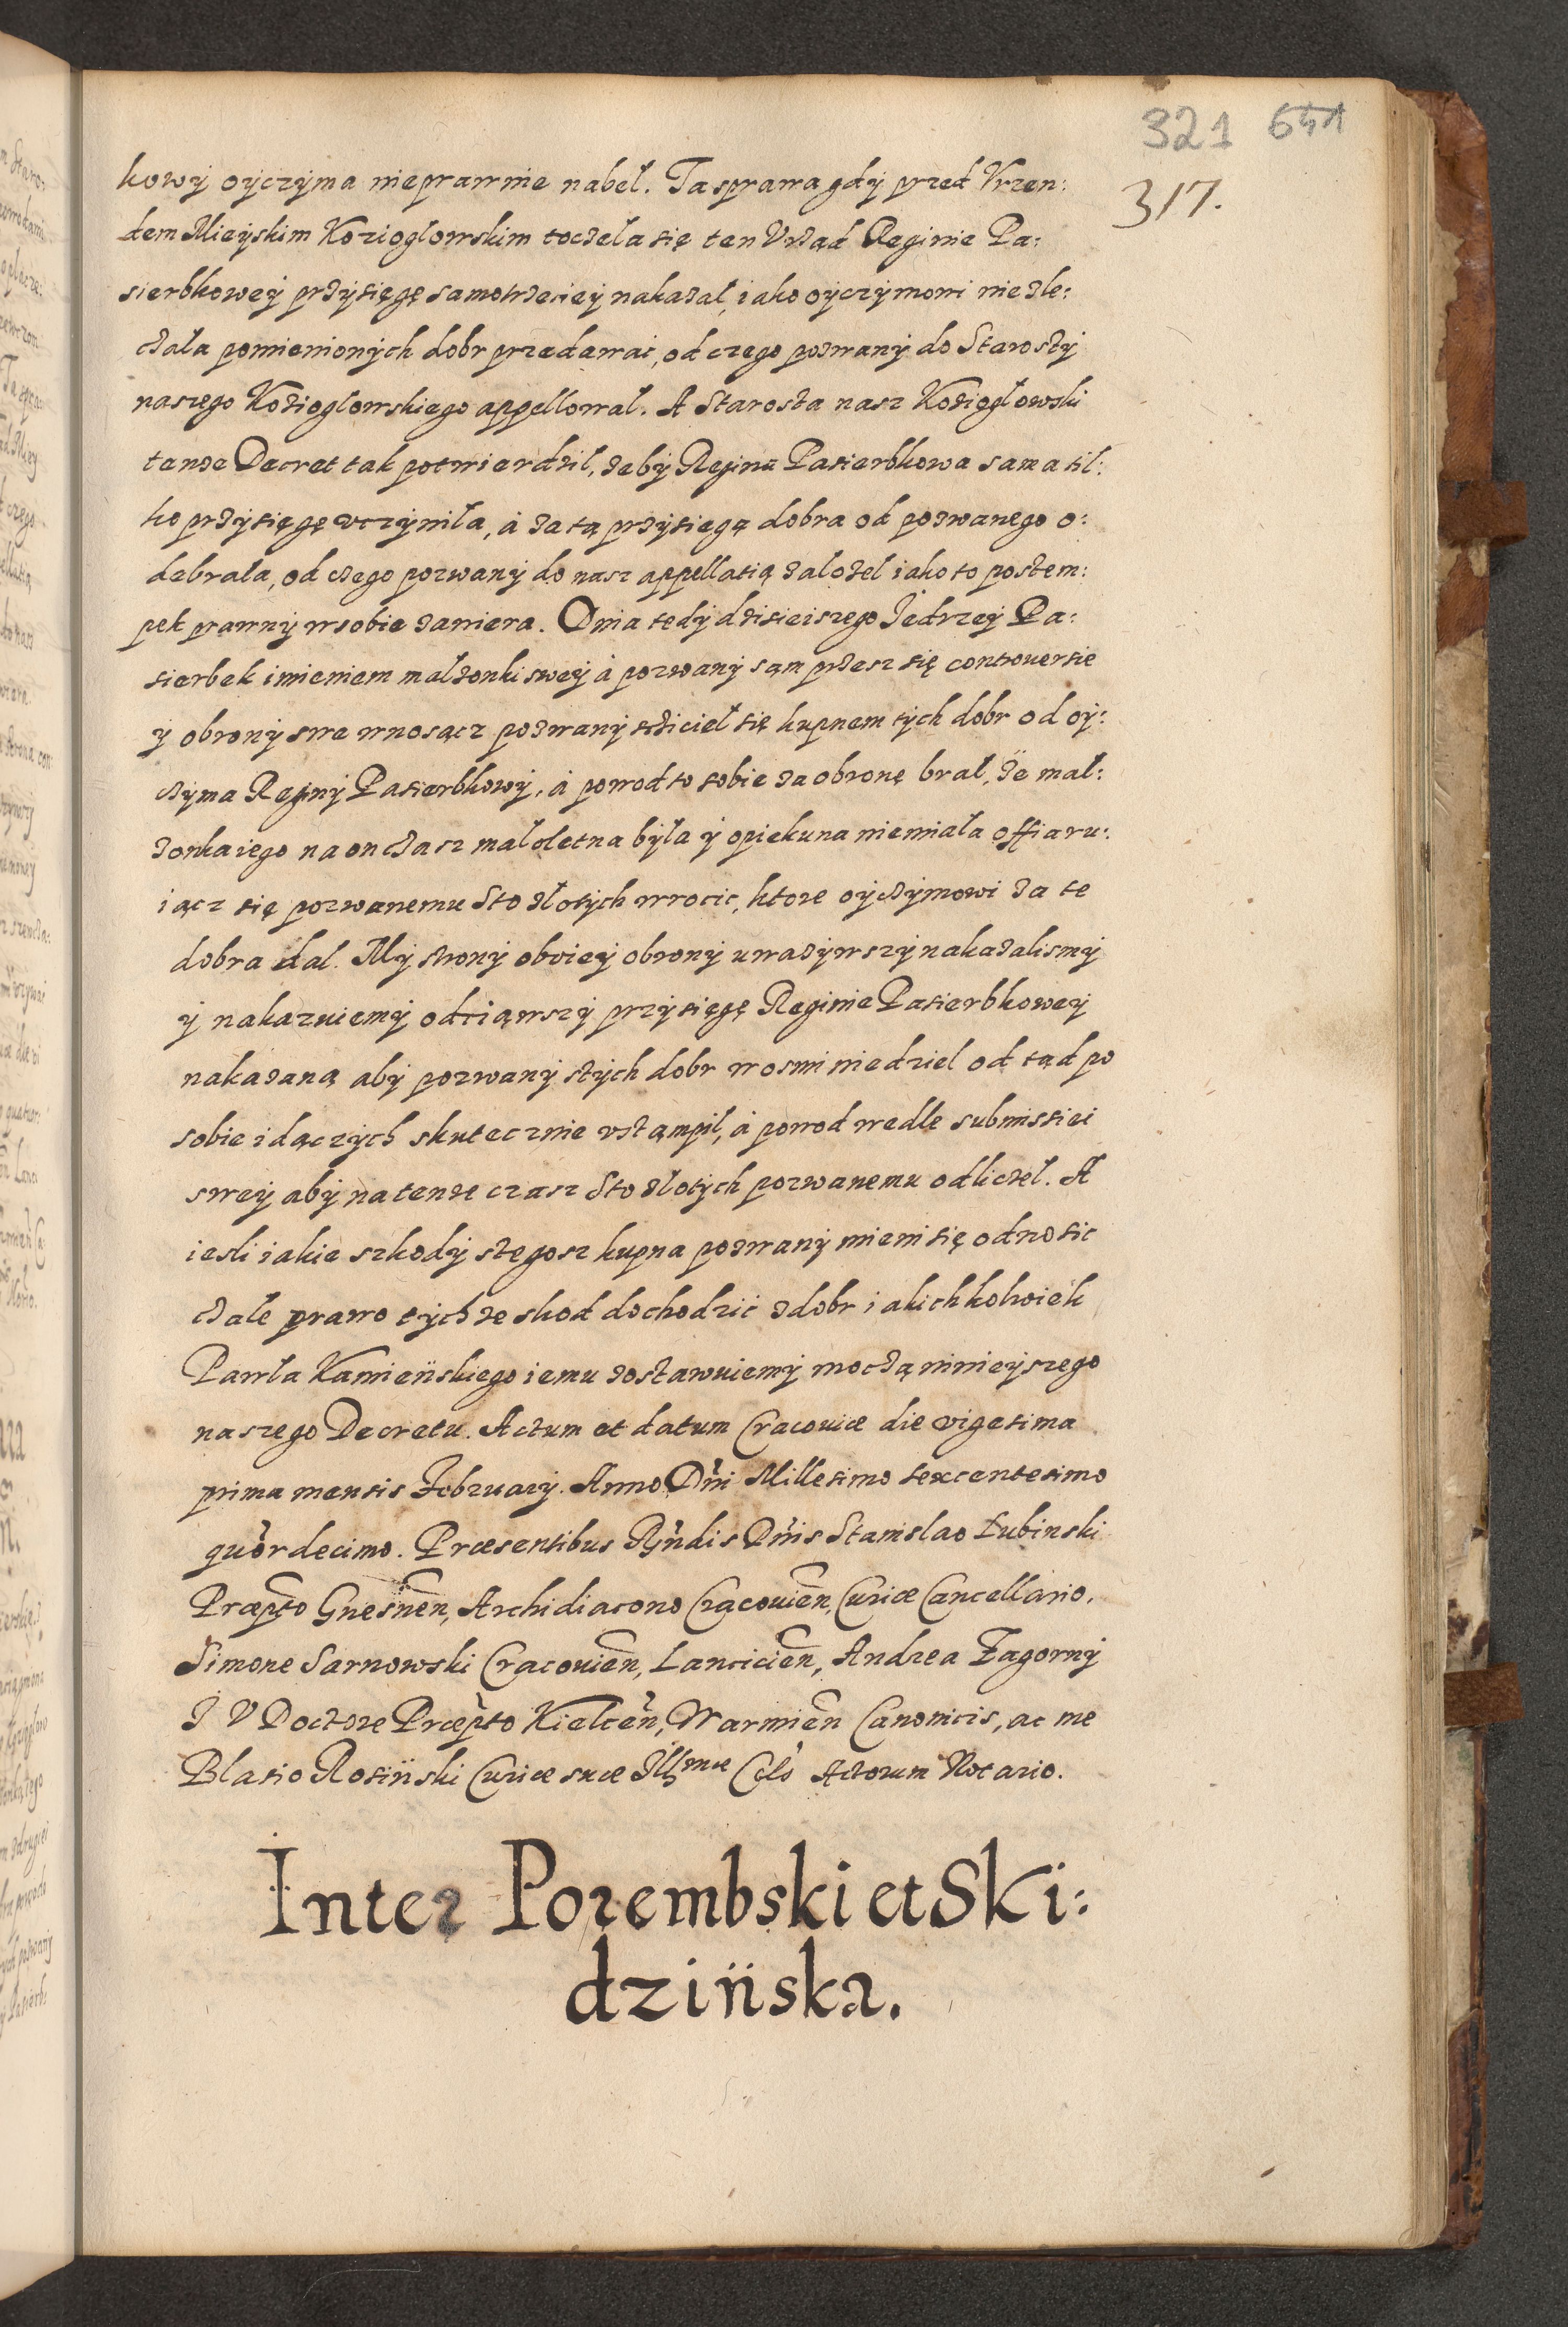 321 651
317.
kowy oÿczÿma nieprawnie nabeł. Ta sprawa gdÿ przed Vrzen:
dem Mieÿskim Kozioglowskim toczeła się ten Vrząd Reginie Pa:
sierbkoweÿ przÿsięgę samotrzecieÿ nakazał, iako oÿczÿmowi nie zle:
czała pomienionÿch dobr przedawać, od czego pozwanÿ do Starostÿ
naszego Kozioglowskiego appellował. A Starosta nasz Kozioglowski
tenze Decret tak potwierdził, zebÿ Regina Pasierbkowa sama til:
ko przÿsięgę vczÿniła, á za tą przÿsięgą dobra od pozwanego o:
debrała, od czego pozwanÿ do nasz appellatią założel iako to postem:
pek prawnÿ w sobie zawiera. Dnia tedÿ dzisieiszego Jędrzeÿ Pa:
sierbek imieniem małzonki sweÿ á pozwanÿ sąm przesz się controuersie
ÿ obronÿ swe wnosącz pozwanÿ sczicieł się kupnem tÿch dobr od oÿ:
czÿma Reginÿ Pasierbkowÿ, á powod to sobie za obronę brał, że mał:
zonka iego na on czasz małoletna bÿła ÿ opiekuna niemiała offiaru:
iącz się pozwanemu sto złotÿch wrocic, ktore oÿczÿmowi za te
dobra dał. Mÿ stronÿ oboieÿ obronÿ uwazÿwszÿ nakazalismÿ
ÿ nakazuiemÿ odciąwszÿ przÿsięgę Reginie Pasierbkoweÿ
nakazaną abÿ pozwanÿ stÿch dobr w osmi niedziel od tąd po
sobie idączÿch skutecznie vstąmpił, á powod wedle submissiei
sweÿ abÿ na tenze czasz sto złotÿch pozwanemu odliczeł. A
iesli iakie szkodÿ stegosz kupna pozwanÿ mieni się odnosic
czałe prawo tÿchze skod dochodzić z dobr iakichkolwiek
Pawła Kamieńskiego iemu zostawuiemÿ moczą ninieÿszego
naszego Decretu. Actum et datum Cracouiæ die vigesima
prima mensis Februarÿ. Anno Dni Millesimo sexcentesimo
quordecimo. Præsentibus Rndis Dnis Stanislao Łubinski
Præpto Gnesnen, Archidiacono Cracouien, Curiæ Cancellario,
Simone Sarnowski Cracouien, Lancicien, Andrea Zagornÿ
I V Doctore Præpto Kielcen, Warmien Canonicis, ac me
Blasio Rosiński Curiæ suæ Illmæ Cels Actorum Notario.
Inter Porembski et Ski:
dzińska.